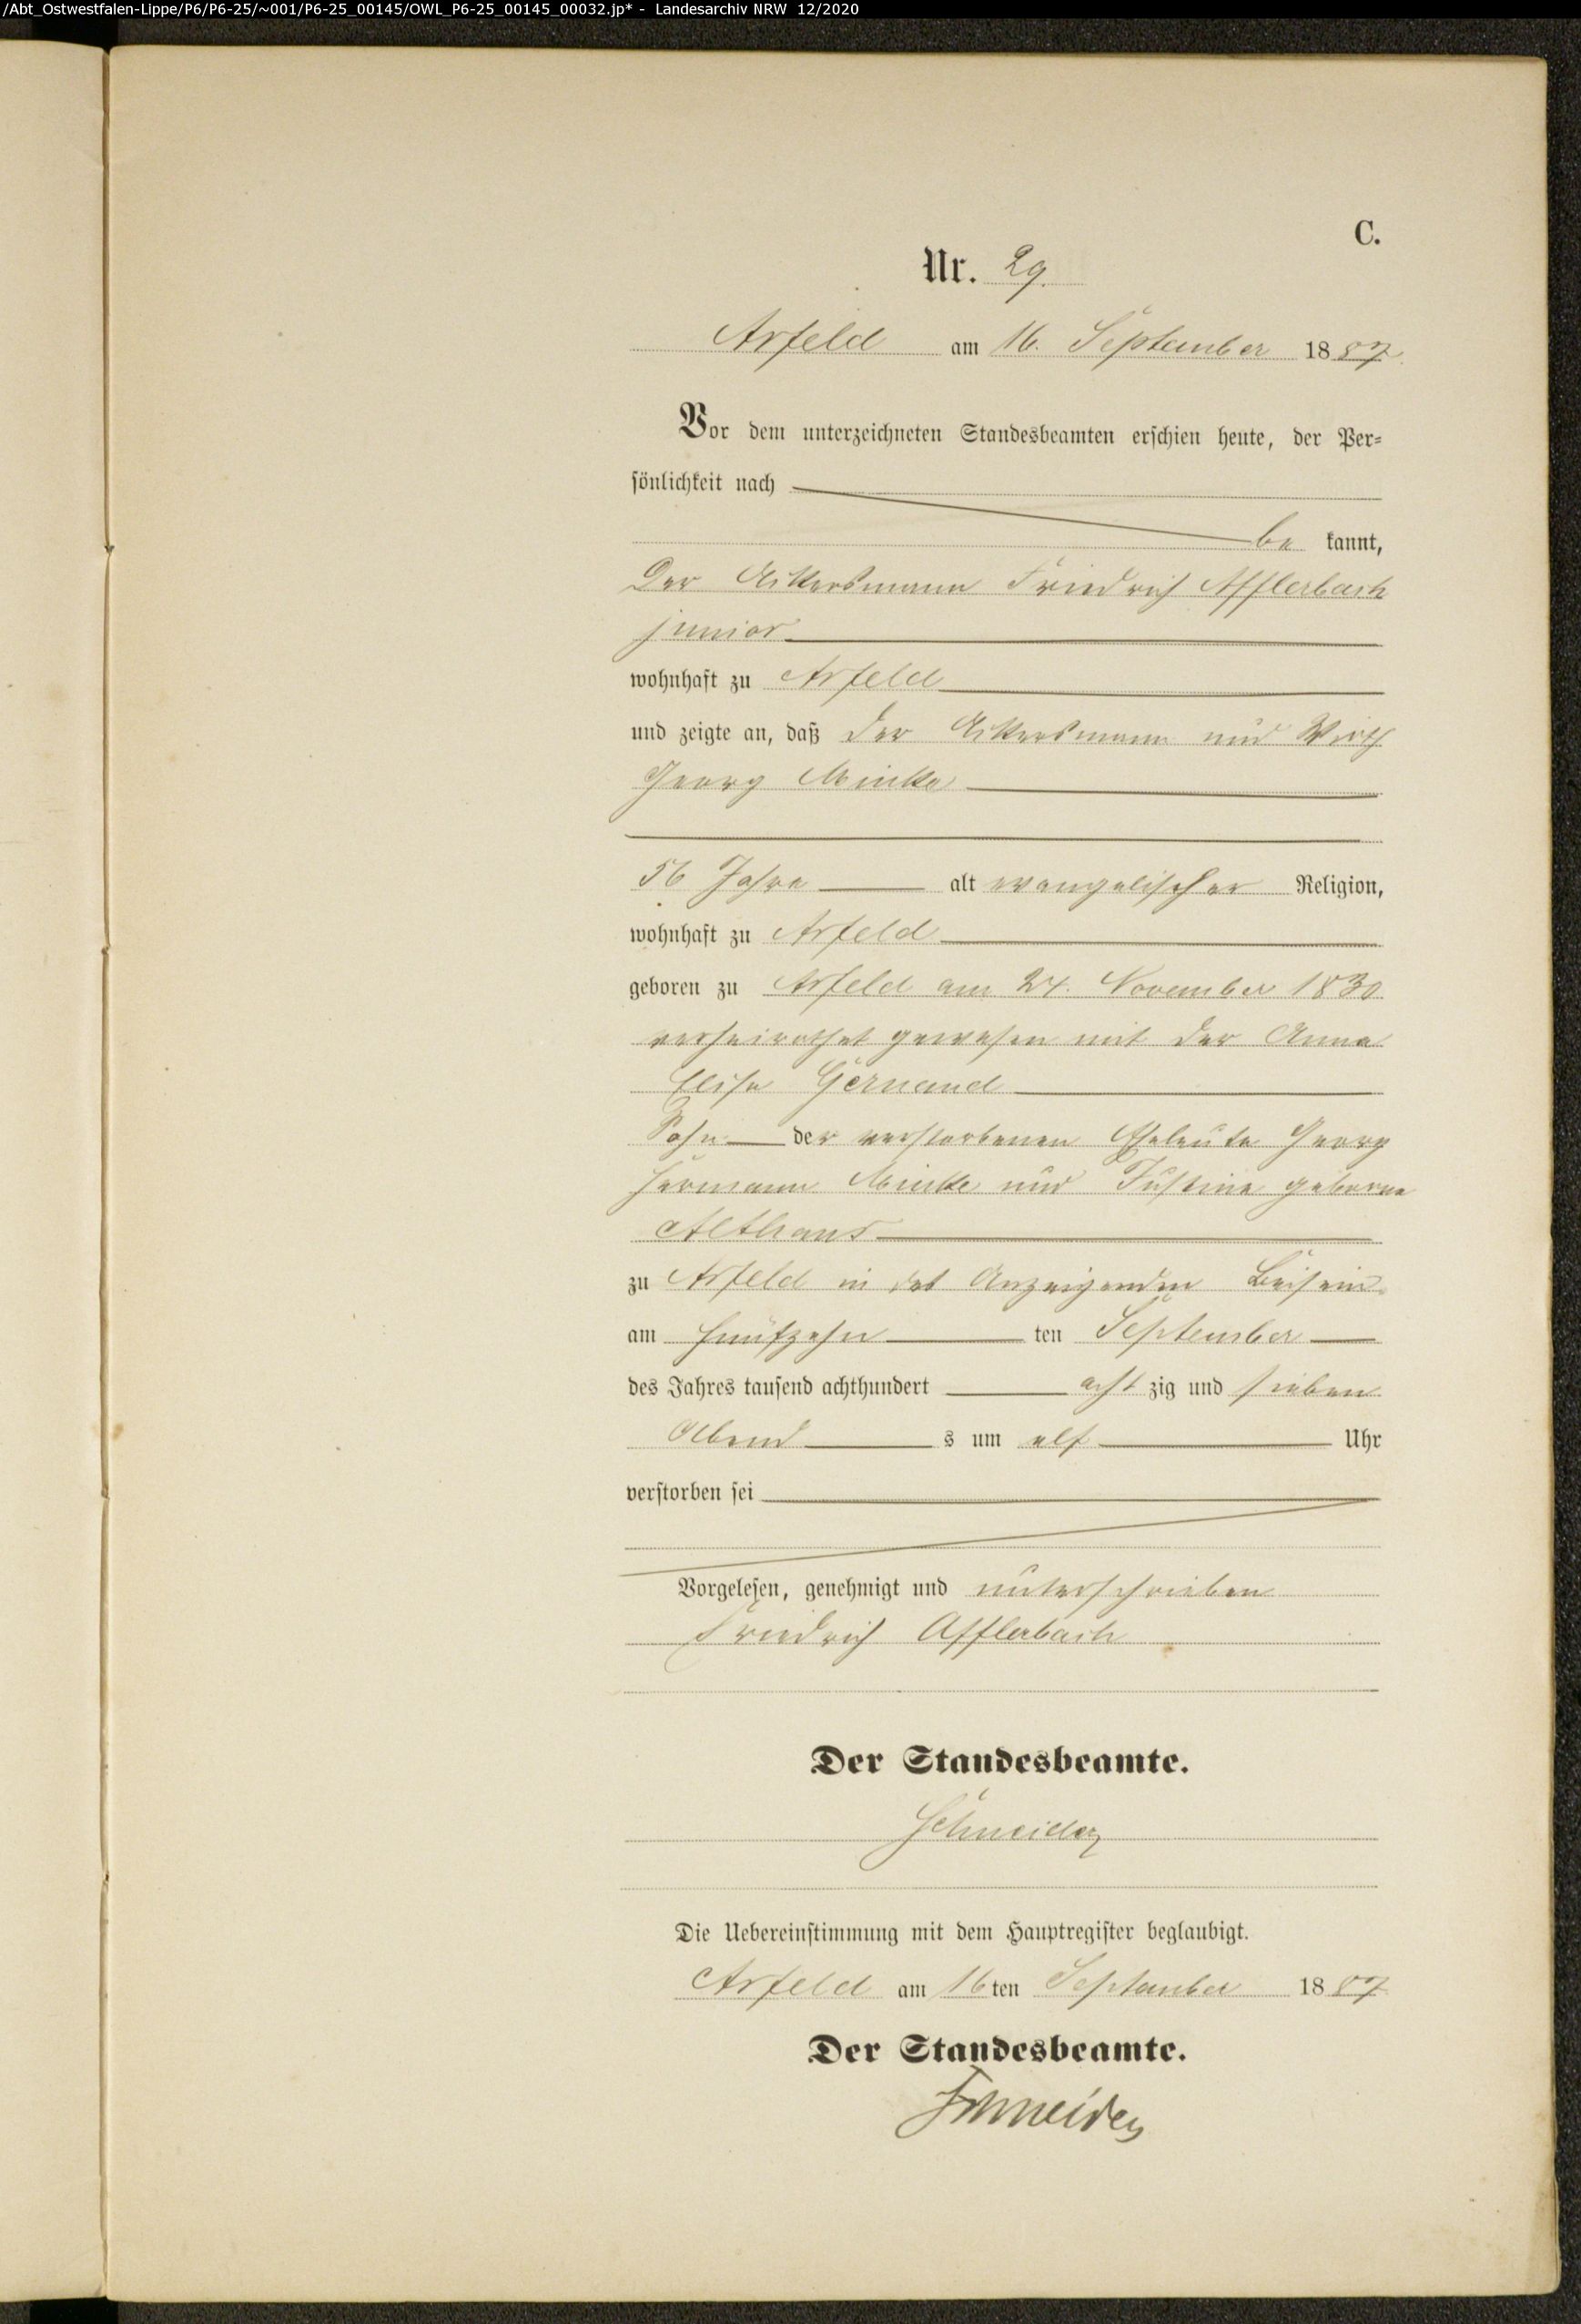 /Abt_Ostwestfalen-Lippe/P6/P6-25/~001/P6-25_00145/OWL_P6-25_00145_00032.jp* - Landesarchiv NRW 12/2020
C.
Nr. 29.
Arfeld am 16. September 1887.
Vor dem unterzeichneten Standesbeamten erschien heute, der Per-
sönlichkeit nach
be kannt,
Der Ackersmann Friedrich Afflerbach
junior
wohnhaft zu Arfeld
und zeigte an, daß der Ackersmann und Wirth
Georg Mincke
56 Jahre alt evangelischer Religion,
wohnhaft zu Arfeld
geboren zu Arfeld am 24. November 1830
verheirathet gewesen mit der Anna
Elise Gernand
Sohn der verstorbenen Eheleute Georg
Hermann Mincke und Justine geborne
Althaus
zu Arfeld in des Anzeigenden Beisein
am fünfzehn ten September
des Jahres tausend achthundert acht zig und sieben
Abend s um elf Uhr
verstorben sei
Vorgelesen, genehmigt und unterschrieben
Friedrich Afflerbach
Der Standesbeamte.
Schneider
Die Uebereinstimmung mit dem Hauptregister beglaubigt.
Arfeld am 16ten September 1887
Der Standesbeamte.
Schneider